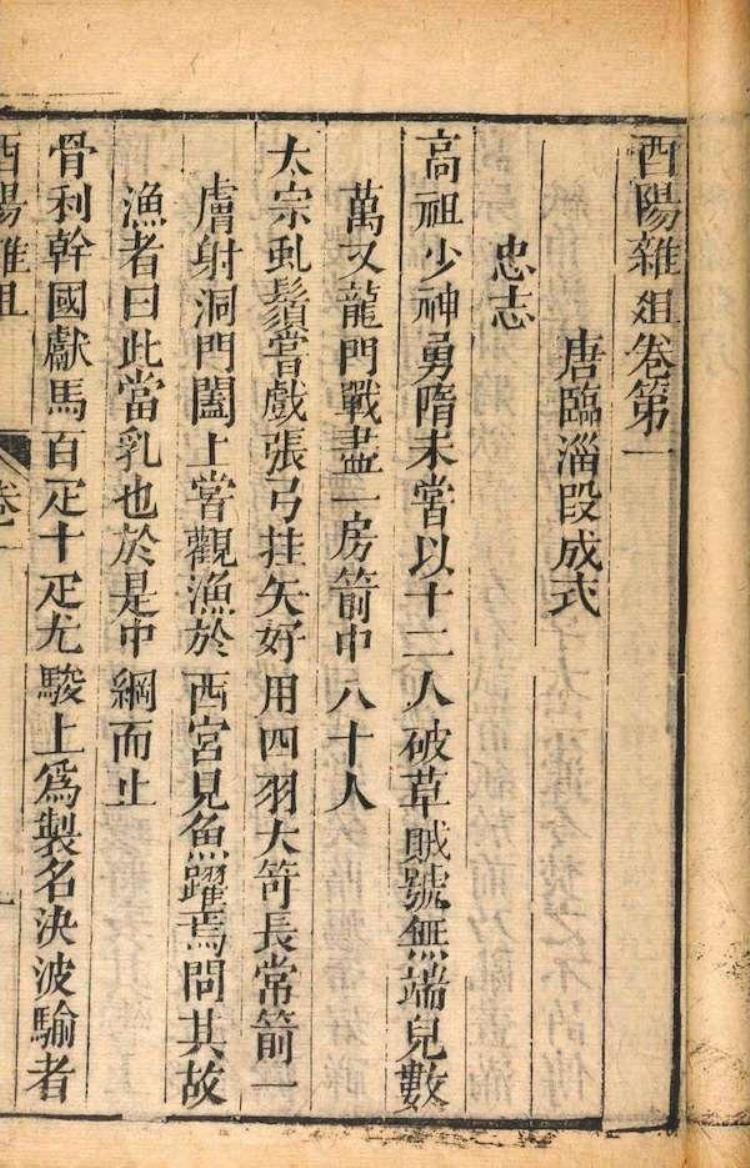 酉陽雜俎卷第一
唐臨淄段成式
忠志
高祖少神勇隋末嘗以十二人破草賊號無端兒數
萬又龍門戰盡一房箭中八十人
太宗虬鬚嘗戲張弓挂矢好用四羽大笴長常箭一
膚射洞門闔上嘗觀漁於西宮見魚躍焉問其故
漁者曰此當乳也於是中網而止
骨利幹國獻馬百疋十疋尤駿上爲製名決波騟者
酉陽雜俎
卷一
一